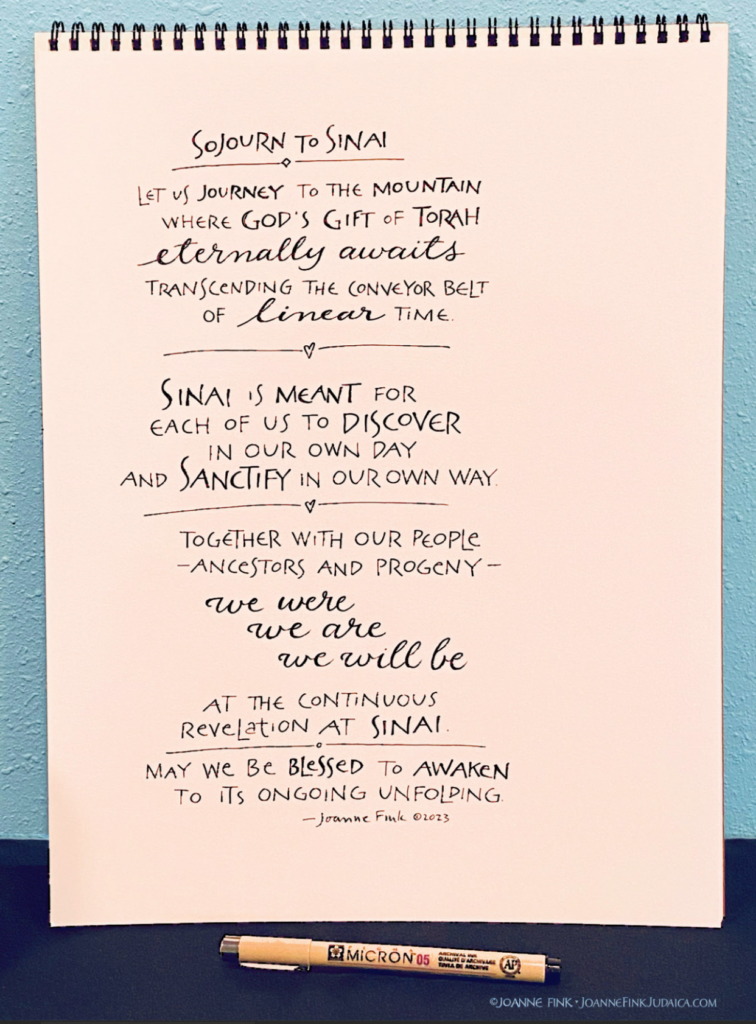 SOJOURN TO SINAI
LET US JOURNEY TO THE MOUNTAIN
WHERE GOD'S GIFT OF TORAH
eternally awaits
TRANSCENDING THE CONVEYOR BELT
OF linear TIME.
SINAI IS MEANT FOR
EACH OF US TO DISCOVER
IN OUR OWN DAY
AND SANCTIFY IN OUR OWN WAY.
TOGETHER WITH OUR PEOPLE
—ANCESTORS AND PROGENY—
we were
we are
we will be
AT THE CONTINUOUS
REVELATION AT SINAI.
MAY WE BE BLESSED TO AWAKEN
TO ITS ONGOING UNFOLDING.
—Joanne Fink ©2023
MICRON 05
ARCHIVAL INK
QUALITÉ D'ARCHIVAGE
TINTA DE ARCHIVE
AP
©JOANNE FINK • JOANNEFINKJUDAICA.COM